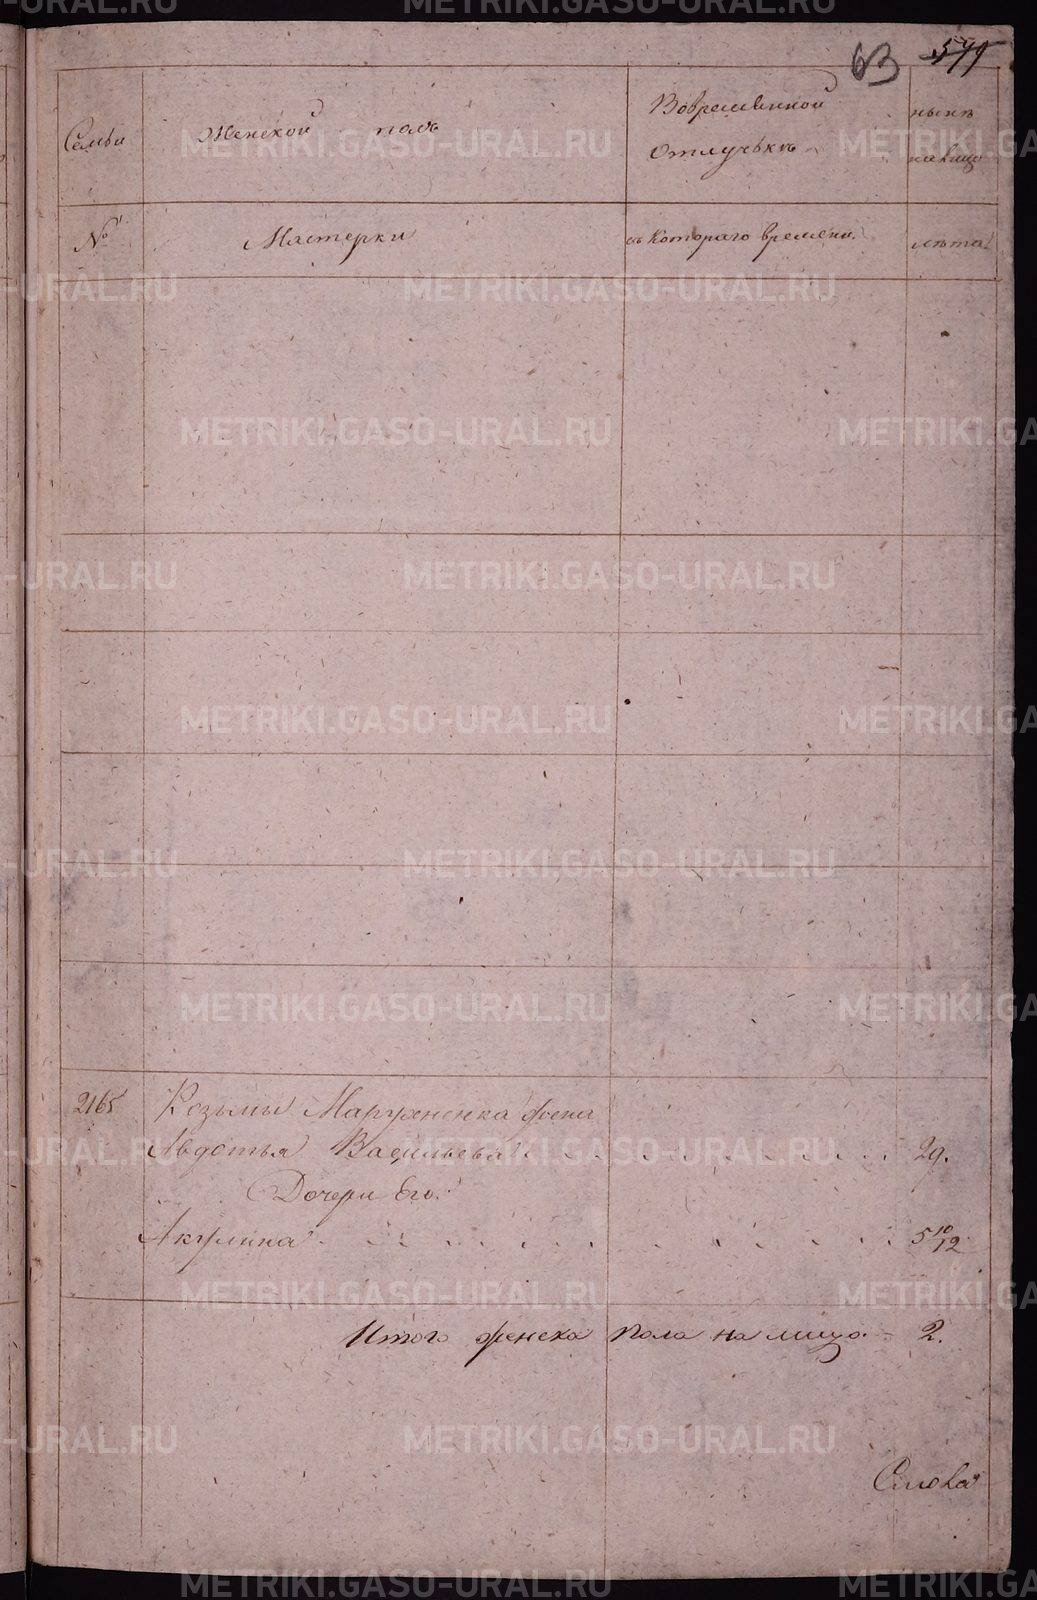 63 571
Семьи
Женской полъ
Вовременной
Отлучькѣ
нынѣ
налицо
№
Мастерки
съ Котораго времени.
лѣта
2165
Козьмы Марухненка жена
Авдотья Васильева 29.
Дочери Его:
Акулина 5 10/12
Итого женска пола на лицо 2.
Слова
METRIKI.GASO-URAL.RU